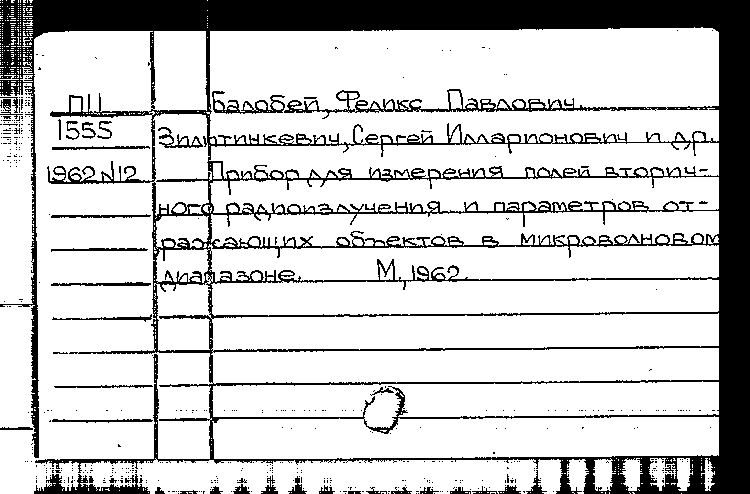 П11 Балобей, Феликс Павлович.
1555 Зилитинкевич, Сергей Илларионович и др.
1962 N12 Прибор для измерения полей вторич-
ного радиоизлучения и параметров от-
ражающих объектов в микроволновом
диапазоне. М., 1962.